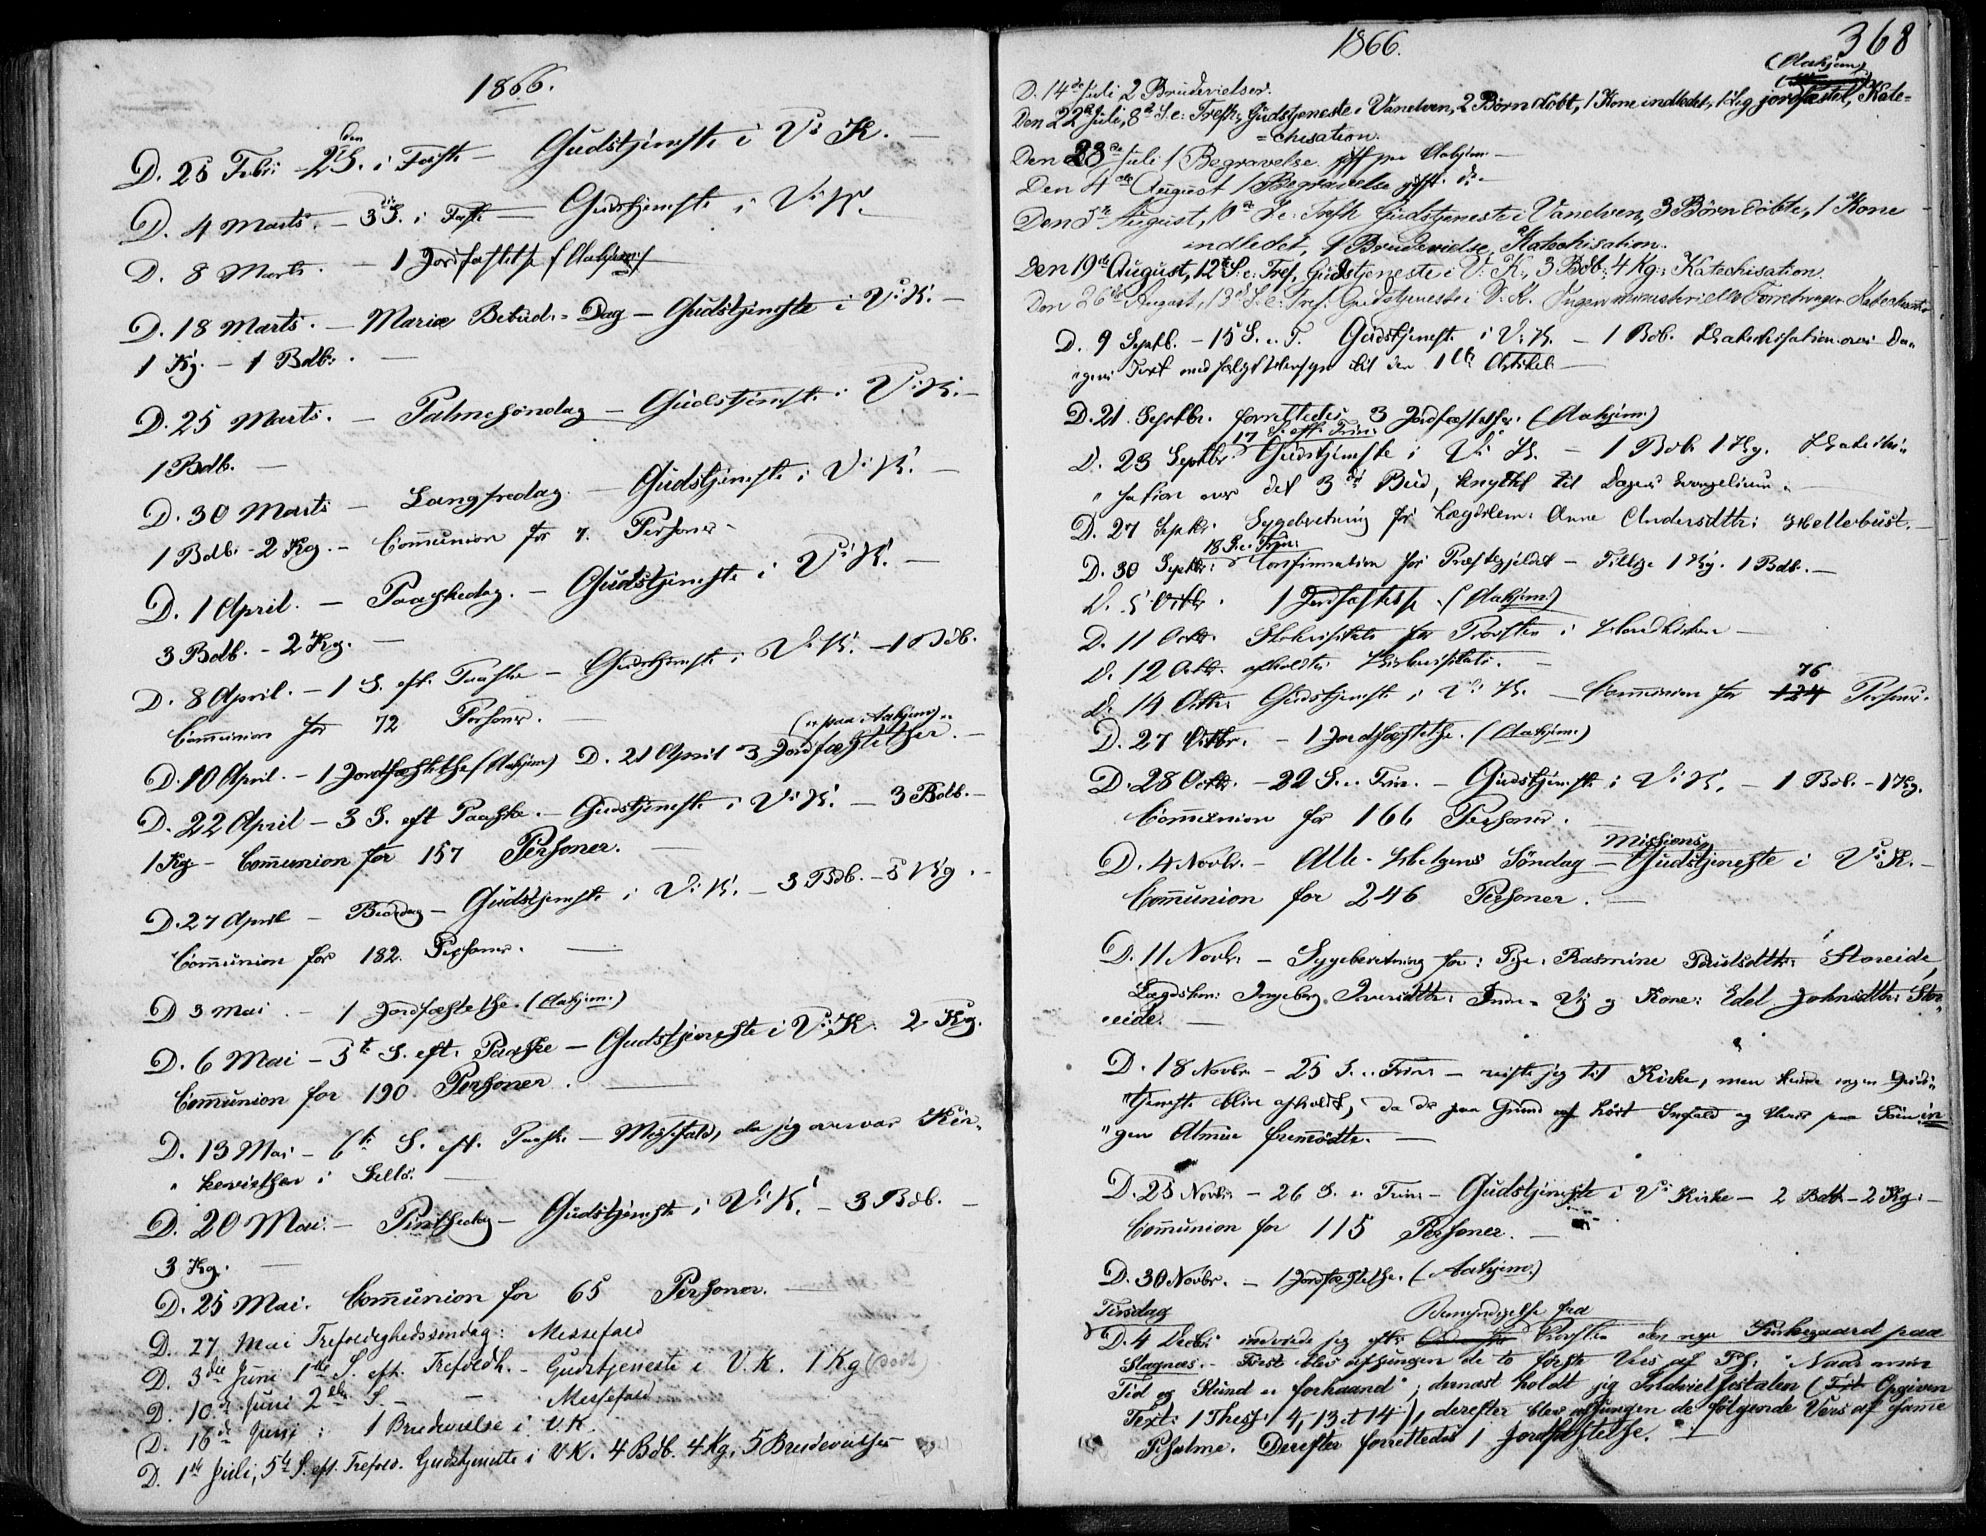 1866.
D. 25 Febr: 2den S. i Faste - Gudstjeneste i V: K. -
D. 4 Marts. - 3die S. i Faste - Gudstjeneste i V: K. -
D. 8 Marts. - 1 Jordfæstelse (Aahjem) -
D. 18 Marts. - Mariæ Bebud.-Dag - Gudstjeneste i V: K. -
1 Kg. - 1 Bdb. -
D. 25 Marts. - Palmesøndag - Gudstjeneste i V: K. -
1 Bdb. -
D. 30 Marts - Langfredag. - Gudstjeneste i V: K. -
1 Bdb. - 2 Kg. - Communion for 7. Personer -
D. 1 April. - Paaskedag. - Gudstjeneste i V: K. -
3 Bdb. - 2 Kg. -
D. 8 April. - 1 S. eft. Paaske - Gudstjeneste i V: K. - 1 Bdb.
Communion for 72 Personer. -
(paa Aahjem)
D. 10 April. - 1 Jordfæstelse (Aahjem) D. 21 April 3 Jordfæstelser. -
D. 22 April - 3 S. eft Paaske. - Gudstjeneste i V: K. - 3 Bdb. -
1 Kg - Communion for 157 Personer. -
D. 27 April - Bededag - Gudstjeneste i V. K. - 3 Bdb. - 8 Kg. -
Communion for 182 Personer. -
D. 3 Mai. - 1 Jordfæstelse. (Aahjem.)
D. 6 Mai - 5te S. eft. Paaske - Gudstjeneste i V: K. 2 Kg.
Communion for 190 Personer. -
D. 13 Mai - 6te S. eft. Paaske - Messefald, da jeg overvar Kir-
" kevielsen i Selle. -
D. 20 Mai. - Pintsedag - Gudstjeneste i V: K. - 3 Bdb. -
3 Kg. -
D. 25 Mai. Communion for 65 Personer. -
D. 27 Mai Trefoldighedssøndag: Messefald
D. 3die Juni 1ste S. eft. Trefoldh. - Gudstjeneste i V. K. 1 Kg
D. 10de Juni 2den S. - - Messefald
D. 16de Juni: 1 Brudevielse i V.K.
D. 1ste Juli, 5te S. eft. Trefold. Gudstjeneste i V.K. 4 Bdb. 4 Kg. 5 Brudevielser
1866.
368
D. 14de Juli 2 Brudevielser.
(Aahjem)
Den 22de Juli, 8de S. e. Trefh., Gudstjeneste i Vanelven, 2 Børn døbt, 1 Kone indledet, 1 Lig jordfæstet, Kate-
=chisation.
Den 28de Juli 1 Begravelse paa Aahjem -
Den 4de August 1 Begravelse do -
Den 5te August, 10de S. e. Trefh. Gudstjeneste i Vanelven, 3 Børn døbte, 1 Kone
indledet, 1 Brudevielse, Katechisation.
Den 19de August, 12te S. e. Tref. Gudstjeneste i V. K., 3 Bdb: 4 Kg: Katechisation
Den 26de August, 13de S. e. Tref. Gudstjeneste i V. K. Ingen ministerielle Forretninger. Katechisation
D. 9 Septb. - 15 S. e. T. Gudstjeneste i V. K. - 1 Bdb. Katechisation over Da-
"gens Text med særligt Hensyn til den 1ste Artikel -
D. 21. Septbr. forrettedes 3 Jordfæstelser. (Aahjem.)
17 S. eft. Trin:
D. 23 Septbr. Gudstjeneste i V: K. - 1 Bdb 1 Kg. Katechi-
" sation over det 3die Bud, knyttet til Dagens Evangelium. -
D. 27 Septbr. Sygeberetning for Lægdslem: Anne Andersdttr: Hellebust. -
18 S. e. Trin:
D. 30 Septbr: Confirmation for Præstegjeldet - Tillige 1 Kg. 1 Bdb. -
D. 5 Octbr. 1 Jordfæstelse (Aahjem.)
D. 11 Octbr. Skolevisitats for Provsten i Hovedkirken -
D. 12 Octbr. afholdtes Kirkevisitats. -
76
D. 14 Octbr. Gudstjeneste i V. K. - Communion for 124 Personer.
D. 27 Octbr. - 1 Jordfæstelse. (Aahjem.)
D. 28 Octbr. - 22 S. e. Trin. - Gudstjeneste i V. K. - 1 Bdb. - 1 Kg.
Communion for 166 Personer. -
Missions
D. 4 Novbr. - Alle-Helgens Søndag - Gudstjeneste i V: K. -
Communion for 246 Personer. -
D. 11 Novbr. - Sygeberetning for: Pige: Rasmine Paulsdttr: Storeide,
Lægdslem: Ingeborg Iversdttr: Indre-Vig og Kone: Edel Johnsdttr: Stor-
eide. -
D. 18 Novbr. - 25 S. e. Trin. - reiste jeg til Kirke, men kunde ingen Guds-
"tjeneste blive afholdt, da der paa Grund af Snefald og Uveir paa Søen in-
"gen Almue fremmødte. -
D. 25 Novbr. - 26 S. e. Trin. - Gudstjeneste i V: Kirke - 2 Bdb - 2 Kg. -
Communion for 115 Personer. -
D. 30 Novbr. - 1 Jordfæstelse. (Aahjem.)
Tirsdag Bemyndigelse fra
D. 4 Decbr. indviede jeg efter Provsten den nye Kirkegaard paa
Slagnæs. - Først blev afsungen de to første Vers af Ps: "Naar min
Tid og Stund er forhaand"; dernæst holdt jeg Indvielsestalen (Opgiven
Text: 1 Thess: 4, 13 et 14), derefter blev afsungen de følgende Vers af samme
Psalme. Derefter forrettedes 1 Jordfæstelse. -